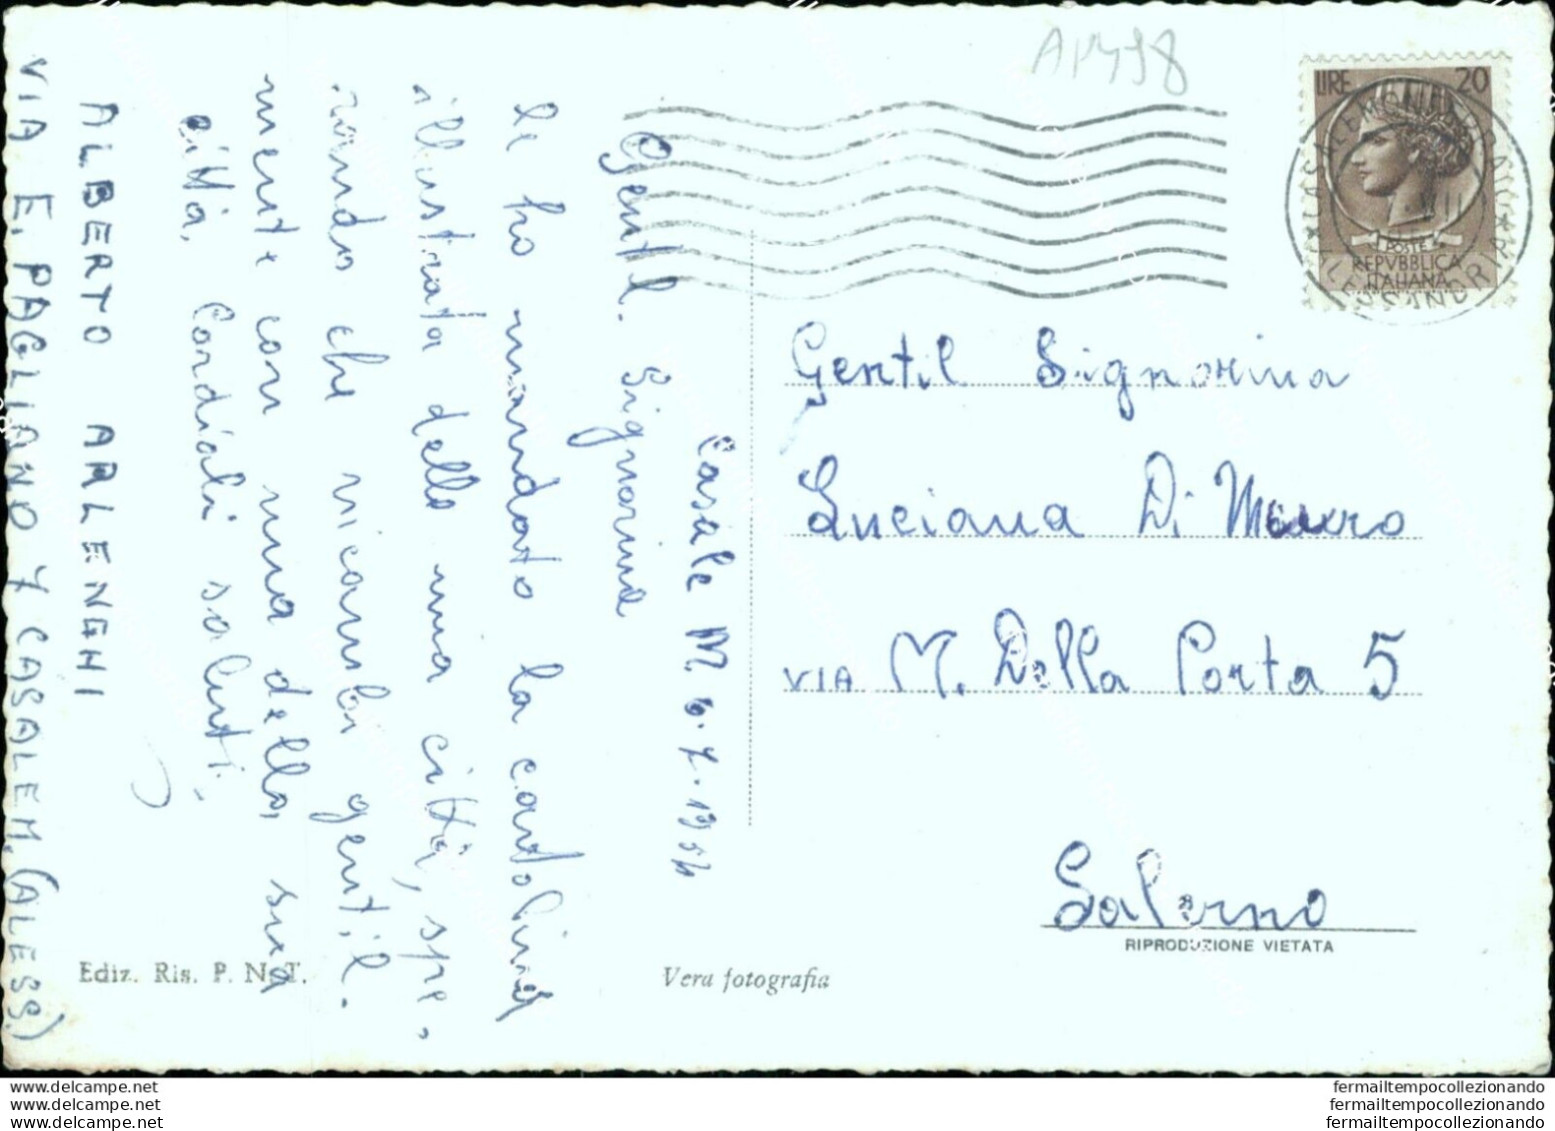 AP498
LIRE 20
POSTE
REPVBBLICA
ITALIANA
Casale M. 6.7.1954
Gentil. Signorina
le ho mandato la cartolina
illustrata della mia città, spe,
rando che ricambi gentil.
mente con una della sua
città.
Cordiali saluti.
ALBERTO ARLENGHI
VIA E. PAGLIANO 7 CASALE M. (ALESS.)
Gentil Signorina
Luciana Di Mauro
VIA M. Della Porta 5
Salerno
RIPRODUZIONE VIETATA
Ediz. Ris. P. N. T.
Vera fotografia
www.delcampe.net
www.delcampe.net
www.delcampe.net
fermailtempocollezionando
fermailtempocollezionando
fermailtempocollezionando